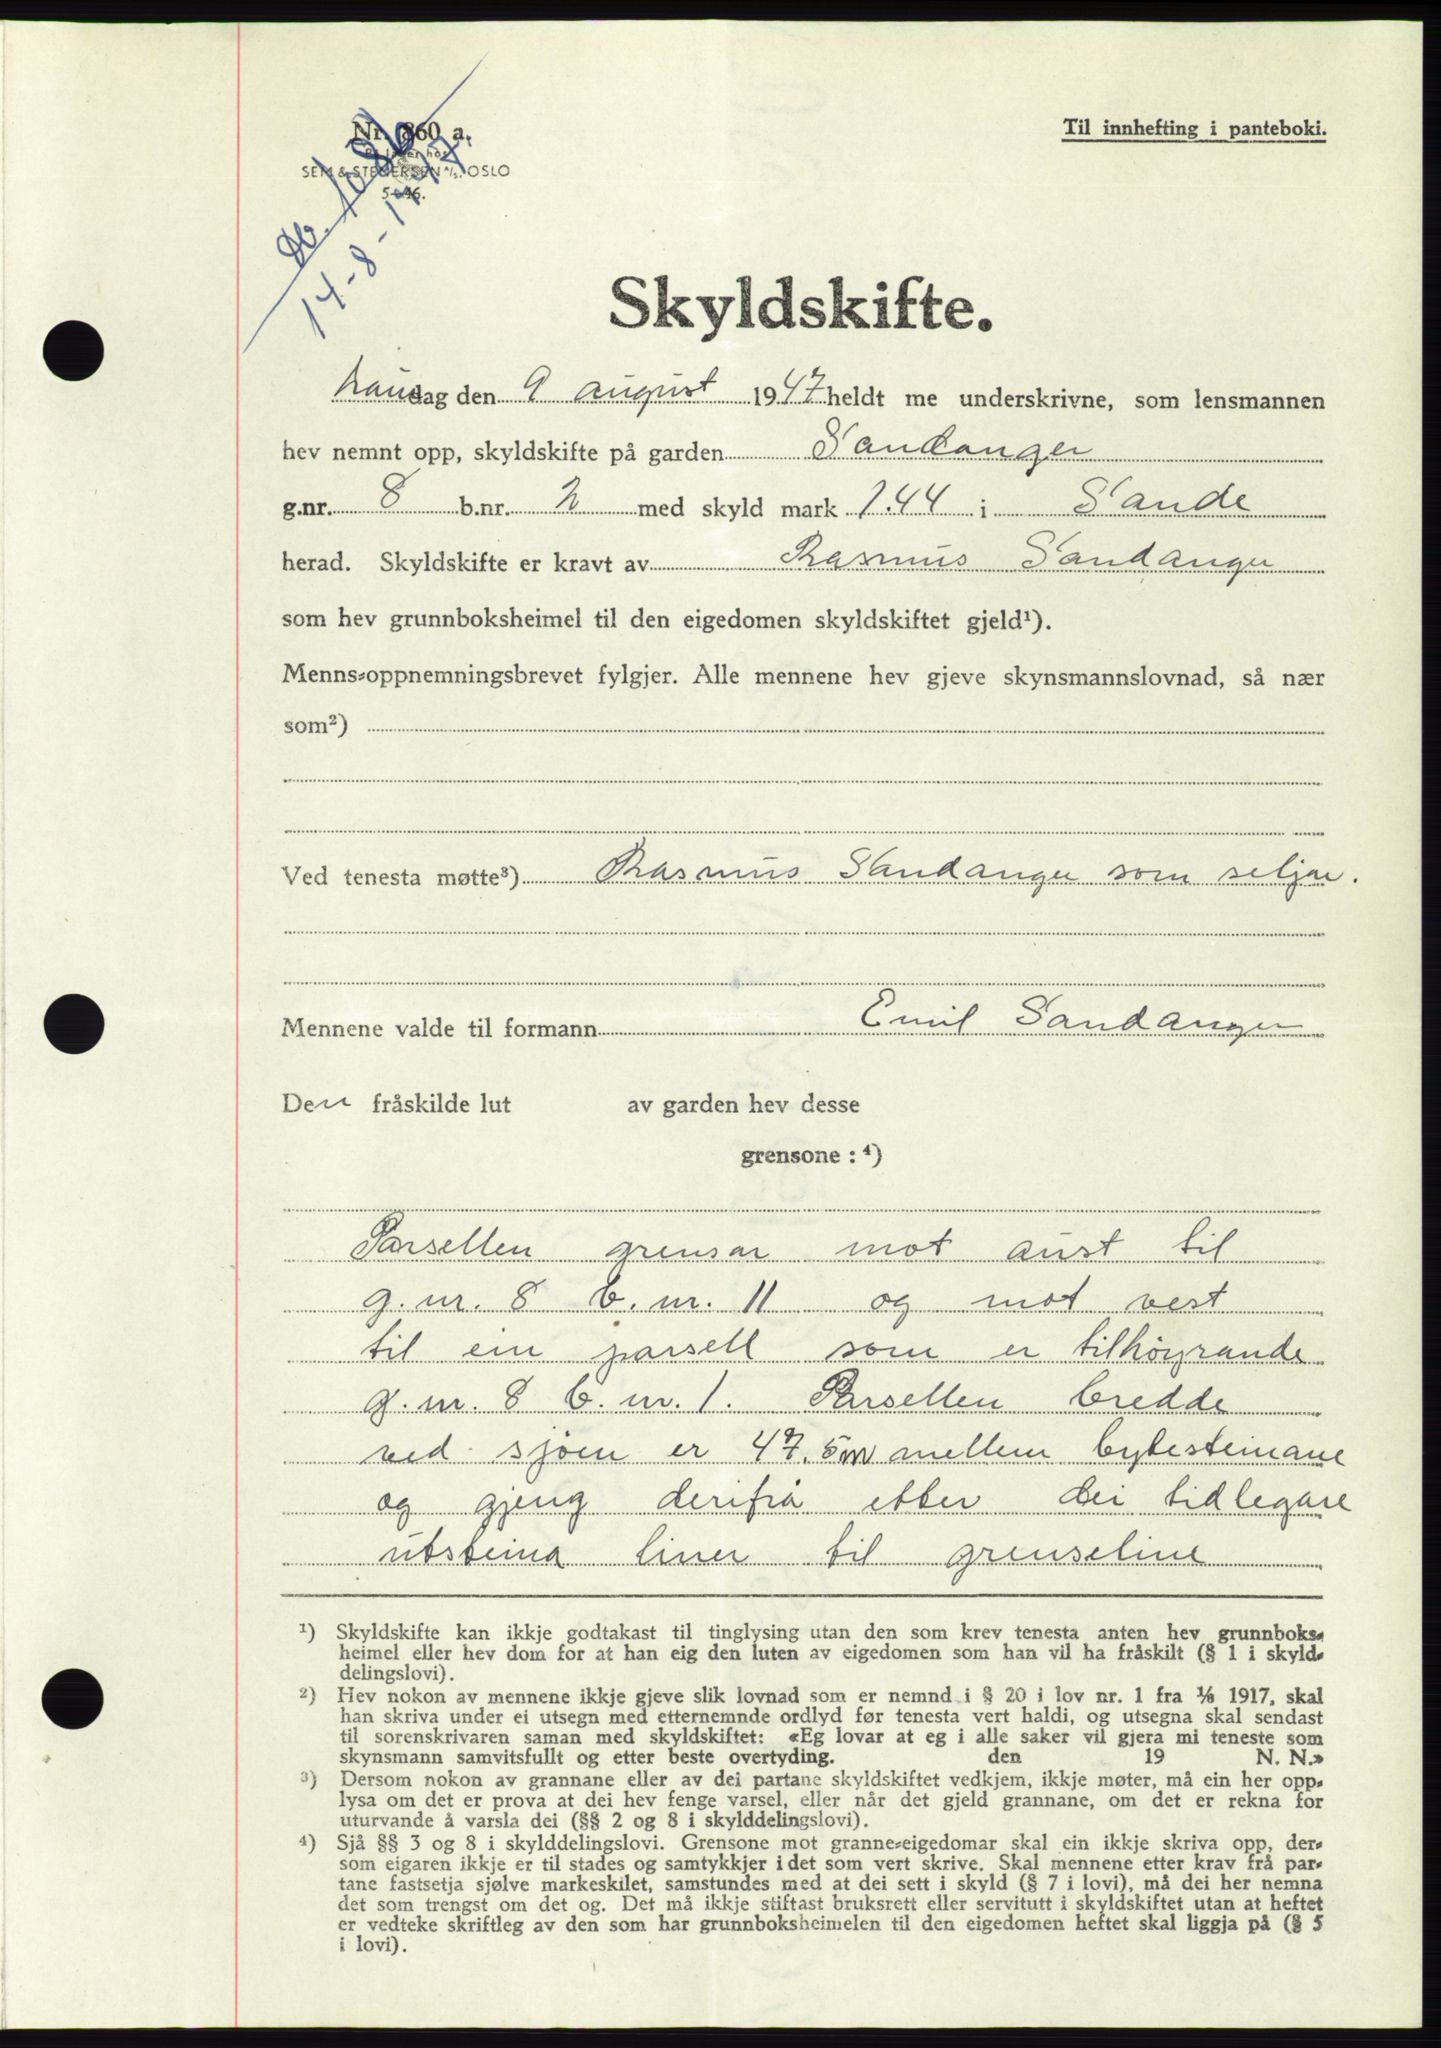 Db. 1086
14-8-1947
Nr. 860 a.
SEM & STENERSEN A/S, OSLO
5-46.
Til innhefting i panteboki.
Skyldskifte.
Laurdag den 9 august 1947 heldt me underskrivne, som lensmannen
hev nemnt opp, skyldskifte på garden Sandanger
g.nr. 8 b.nr. 2 med skyld mark 1.44 i Sande
herad. Skyldskifte er kravt av Rasmus Sandanger
som hev grunnboksheimel til den eigedomen skyldskiftet gjeld¹).
Menns-oppnemningsbrevet fylgjer. Alle mennene hev gjeve skynsmannslovnad, så nær
som²)
Ved tenesta møtte³) Rasmus Sandanger som seljar.
Mennene valde til formann Emil Sandanger
Den fråskilde lut av garden hev desse
grensone : ⁴)
Parsellen grensar mot aust til
g.nr. 8 b.nr. 11 og mot vest
til ein parsell som er tilhöyrande
g.nr. 8 b.nr. 1. Parsellen bredde
ved sjöen er 47.5m mellem bytesteinane
og gjeng derifrå etter dei tidlegare
utsteina liner til grenseline
¹) Skyldskifte kan ikkje godtakast til tinglysing utan den som krev tenesta anten hev grunnboks-
heimel eller hev dom for at han eig den luten av eigedomen som han vil ha fråskilt (§ 1 i skyld-
delingslovi).
²) Hev nokon av mennene ikkje gjeve slik lovnad som er nemnd i § 20 i lov nr. 1 fra ⅛ 1917, skal
han skriva under ei utsegn med etternemnde ordlyd før tenesta vert haldi, og utsegna skal sendast
til sorenskrivaren saman med skyldskiftet: «Eg lovar at eg i alle saker vil gjera mi teneste som
skynsmann samvitsfullt og etter beste overtyding. den 19 N. N.»
³) Dersom nokon av grannane eller av dei partane skyldskiftet vedkjem, ikkje møter, må ein her opp-
lysa om det er prova at dei hev fenge varsel, eller når det gjeld grannane, om det er rekna for
uturvande å varsla dei (§§ 2 og 8 i skylddelingslovi).
⁴) Sjå §§ 3 og 8 i skylddelingslovi. Grensone mot granne-eigedomar skal ein ikkje skriva opp, der-
som eigaren ikkje er til stades og samtykkjer i det som vert skrive. Skal mennene etter krav frå par-
tane fastsetja sjølve markeskilet, samstundes med at dei sett i skyld (§ 7 i lovi), må dei her nemna
det som trengst om det og. Det må ikkje stiftast bruksrett eller servitutt i skyldskiftet utan at heftet
er vedteke skriftleg av den som har grunnboksheimelen til den eigedomen heftet skal liggja på (§ 5
i lovi).